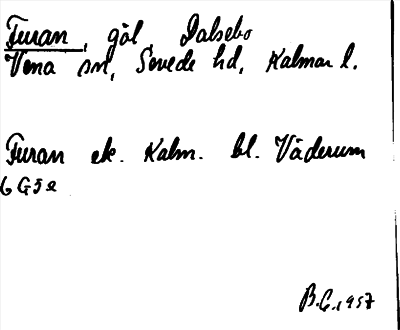 Furan, göl Dalsebo
Vena sn, Sevede hd, Kalmar l.
Furan ek. Kalm. bl. Väderum
6 G5e
B.G. 1957